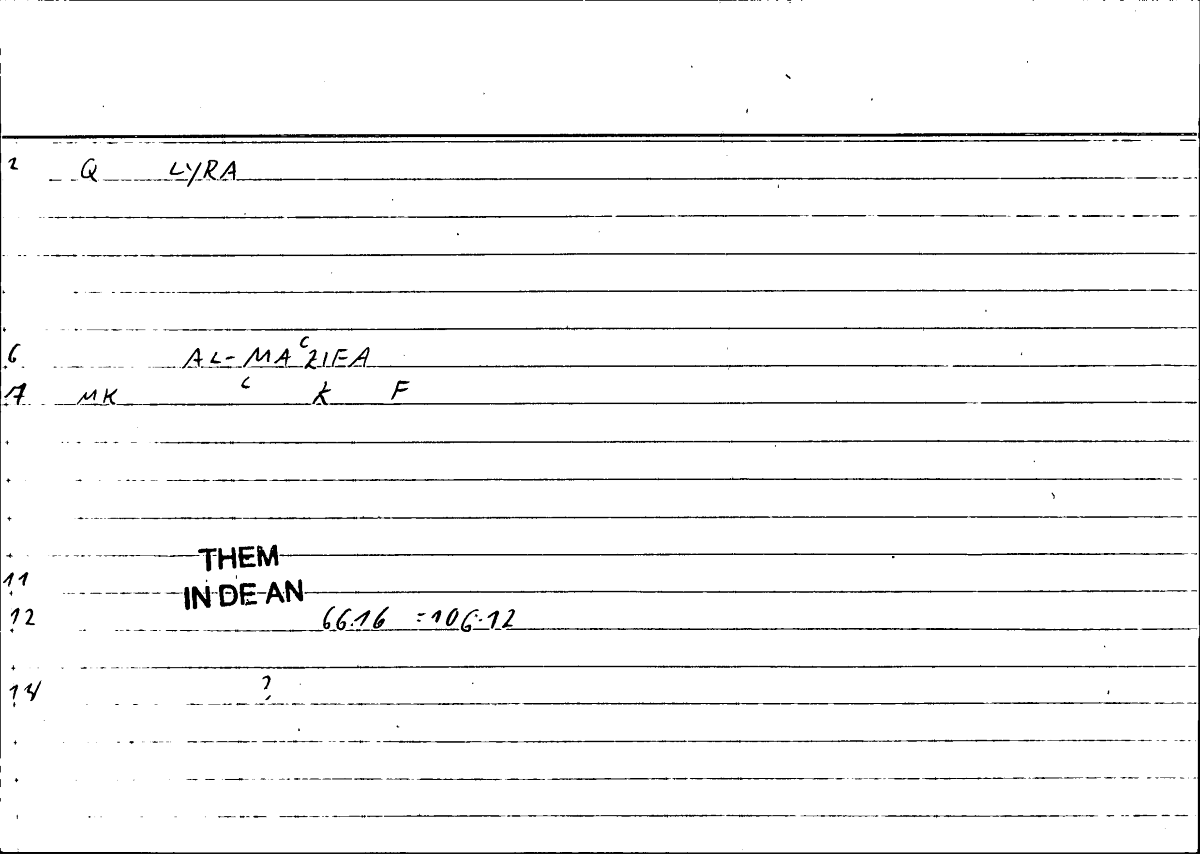 2 Q LYRA
6 AL-MAʿZIFA
7 MK ʿ K F
THEM
11
IN DE AN
12 66.16 =106.12
14 ?